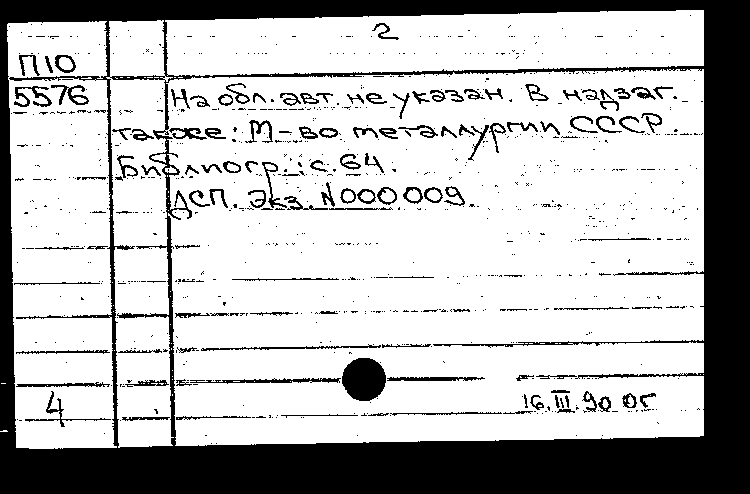 2
П10
5576 На обл. авт. не указан. В надзаг.
также: М-во металлургии СССР.
Библиогр.: с. 64.
ДСП. Экз. N000009.
4 16.III.90 ОГ